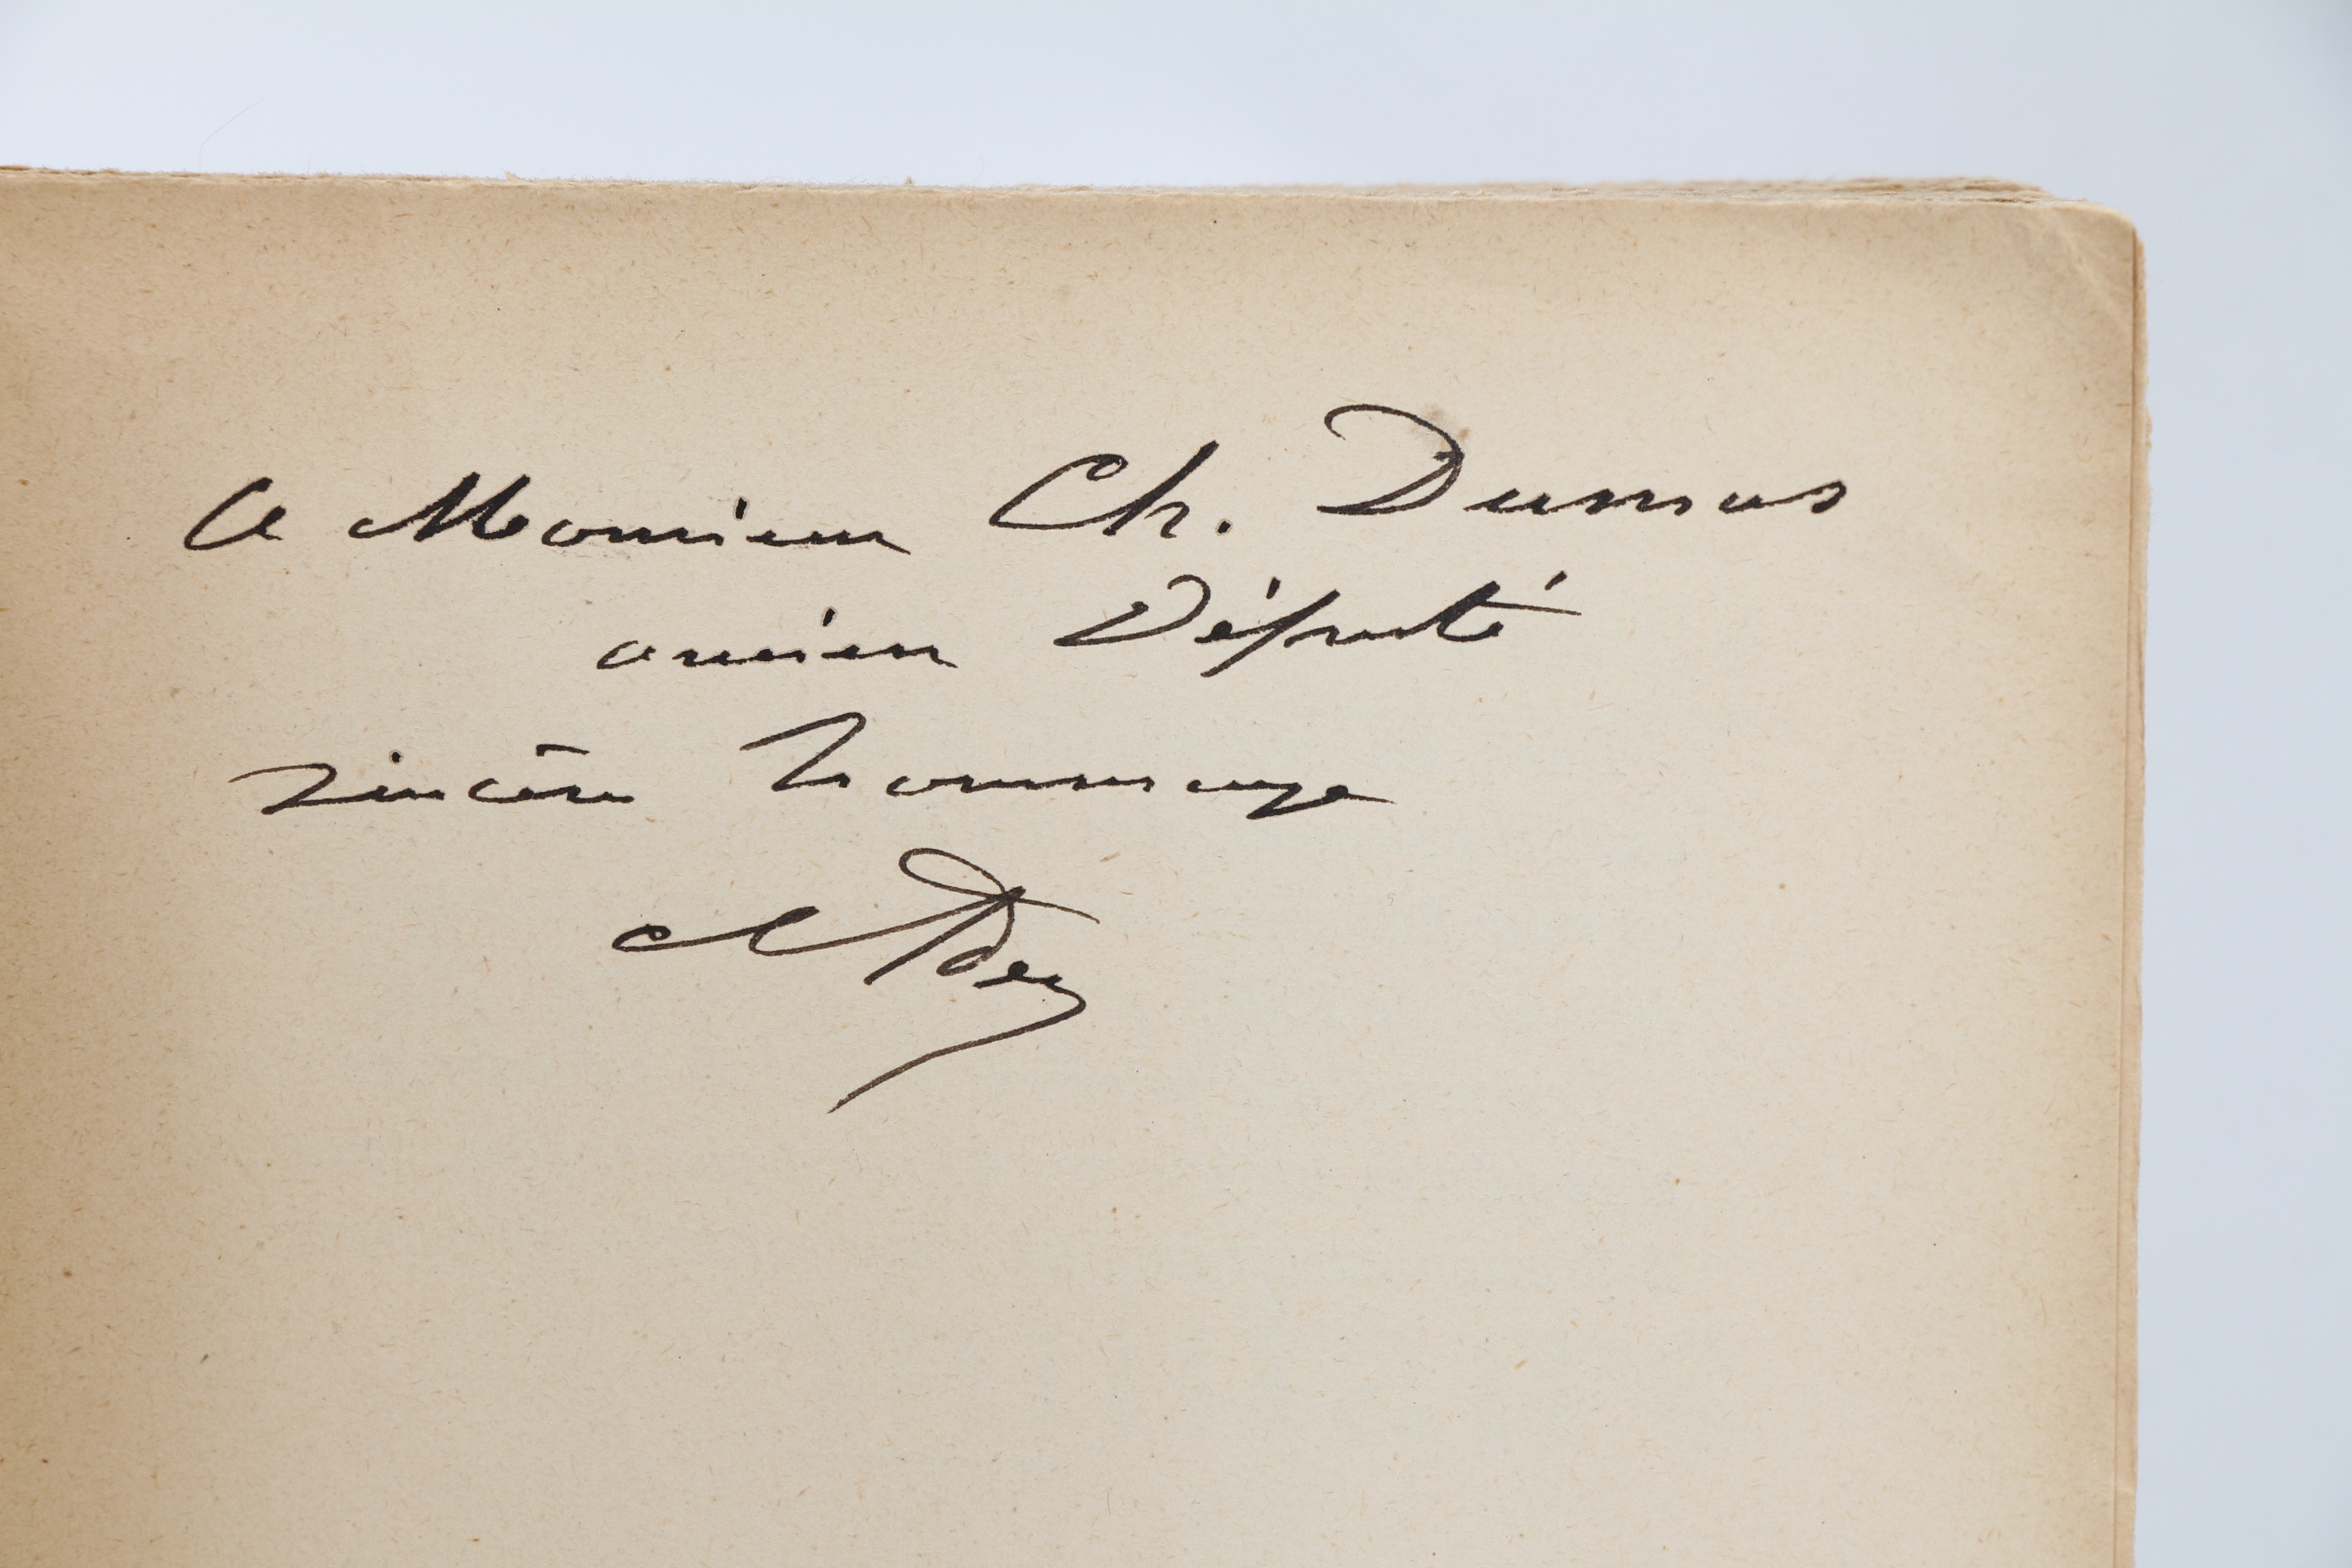 A Monsieur Ch. Dumas
ancien Député
sincère hommage